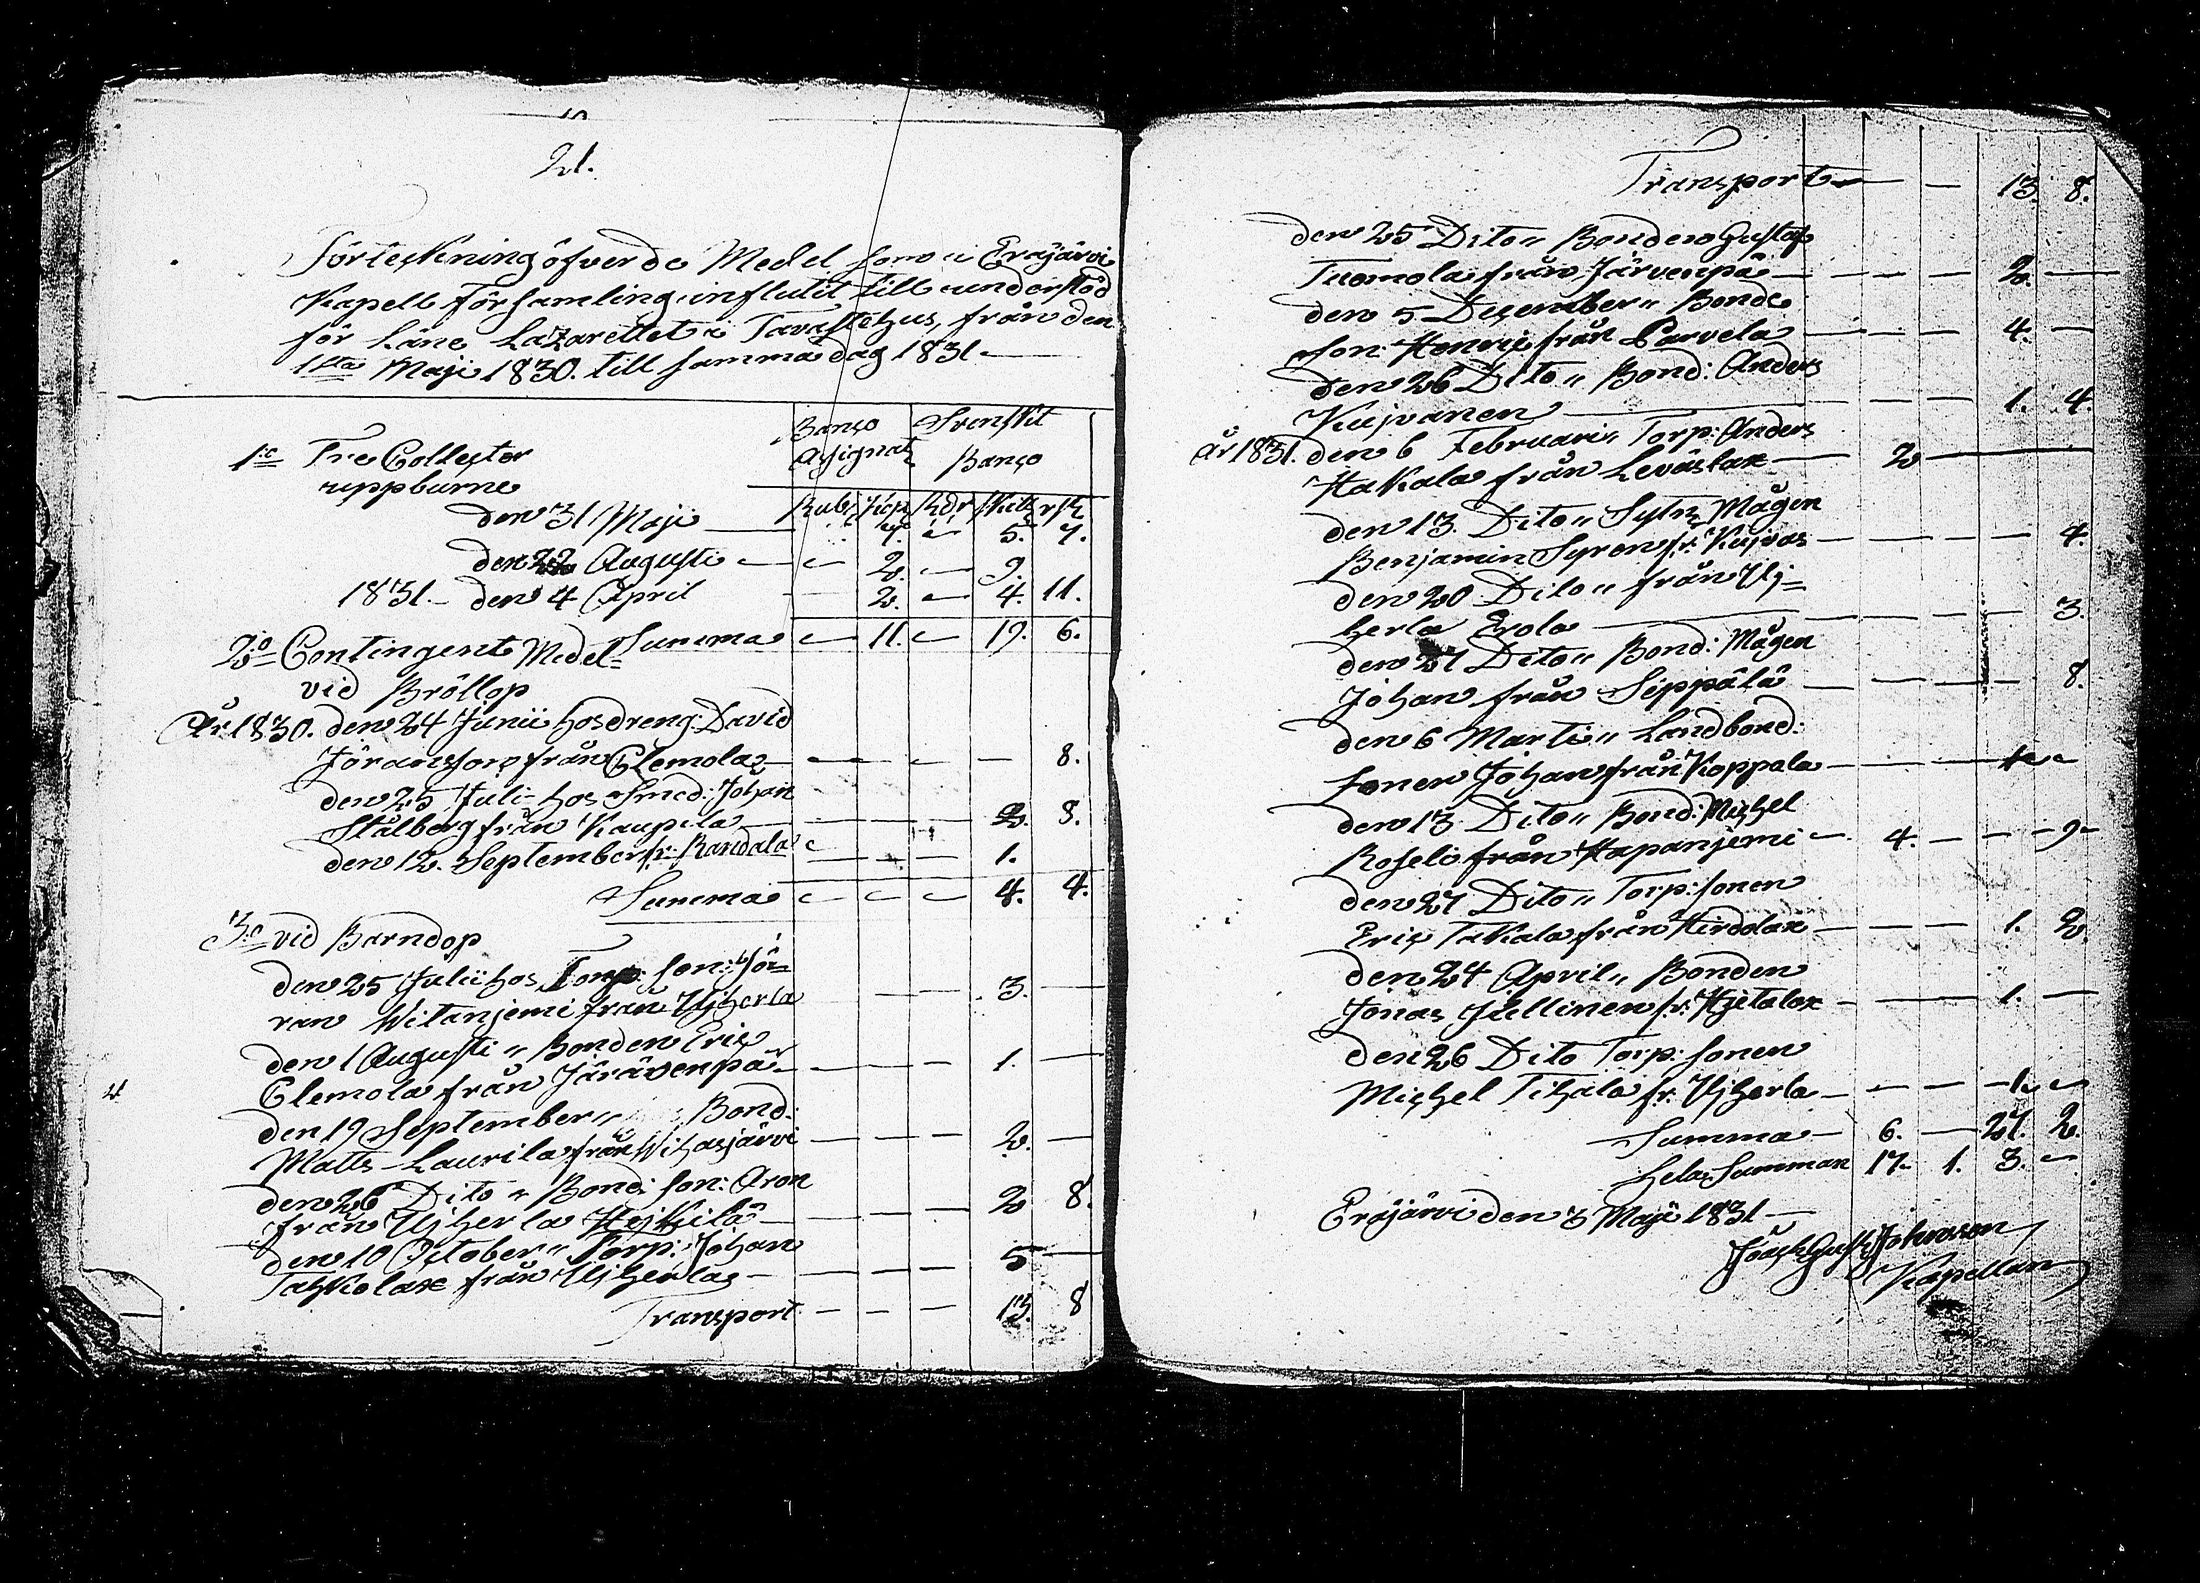 21.
Förteckning öfver de Medel som i Eräjärvi
Kapell Församling influtit till understöd
för Läns Lazarettet i Tavastehus, från den
1sta Maji 1830. till samma dag 1831.
Banco Svenskt
Assignat Banco
1:o Tre Collecter
uppburne
Rub: Kop: Rdr sk: r:st:
den 31 Maji — 7. — 5. 7.
den 22 Augusti — — 2. — 9.
1831. den 4 April — 2. — 4. 11.
Summa — 11. — 19. 6.
2:o Contingent Medel
vid Bröllop
År 1830. den 24 Junii hos dreng: David
Göransson från Elemola — — — — 8.
den 25 Juli hos Smed: Johan
Stålberg från Kaupila — — — 2. 8.
den 12. September fr: Randala — — — 1.
Summa — — — 4. 4.
3:o vid Barndop
den 25 Julii hos Torp: son: Jö-
ran Witanjemi från Ujherla — — 3. —
den 1 Augusti " Bonden Eric
Elemola från Järävenpä — — — 1. —
den 19 September " Bond:
Matts Laurila från Wihasjärvi — — — 2. —
den 26 Dito " Bond: son: Aron
från Ujherla Hejkilä — — — 2 8.
den 10 October " Torp: Johan
Tahkolax från Ujherla — — — 5 —
Transport — — — 13. 8
4
Transport — — 13. 8.
den 25 Dito " Bonden Gustaf
Tuomola från Järvenpä — — — 2. —
den 5 December " Bonde
son: Henric från Parvela — — — 4. —
den 26 Dito " Bond: Anders
Kujvanen — — — 1. 4.
År 1831. den 6 Februari " Torp: Anders
Hakala från Leväslax — 2 —
den 13. Dito " Sytn: Mågen
Benjamin Syren fr: Kujvas — — — — 4.
den 20 Dito " från Uj-
herla Erola — — — — 3.
den 27 Dito " Bond: Mågen
Johan från Seppälä — — — — 8.
den 6 Marti " Landbond:
sonen Johan från Koppala — — —
den 13 Dito " Bond: Michel
Roseli från Hapanjemi — 4. — — 9
den 27 Dito " Torp: sonen
Eric Takala från Hirdolax — — — 1. 2.
den 24 April " Bonden
Jonas Jllinen fr: Hjetalax — — — 1. —
den 26 Dito Torp: sonen
Michel Tihala fr: Ujherla — — — 1. —
Summa — 6. — 27. 2.
hela Summan 17. 1. 3. —
Eräjärvi den 3 Maji 1831 —
Gust: Johnsson
Kapellan